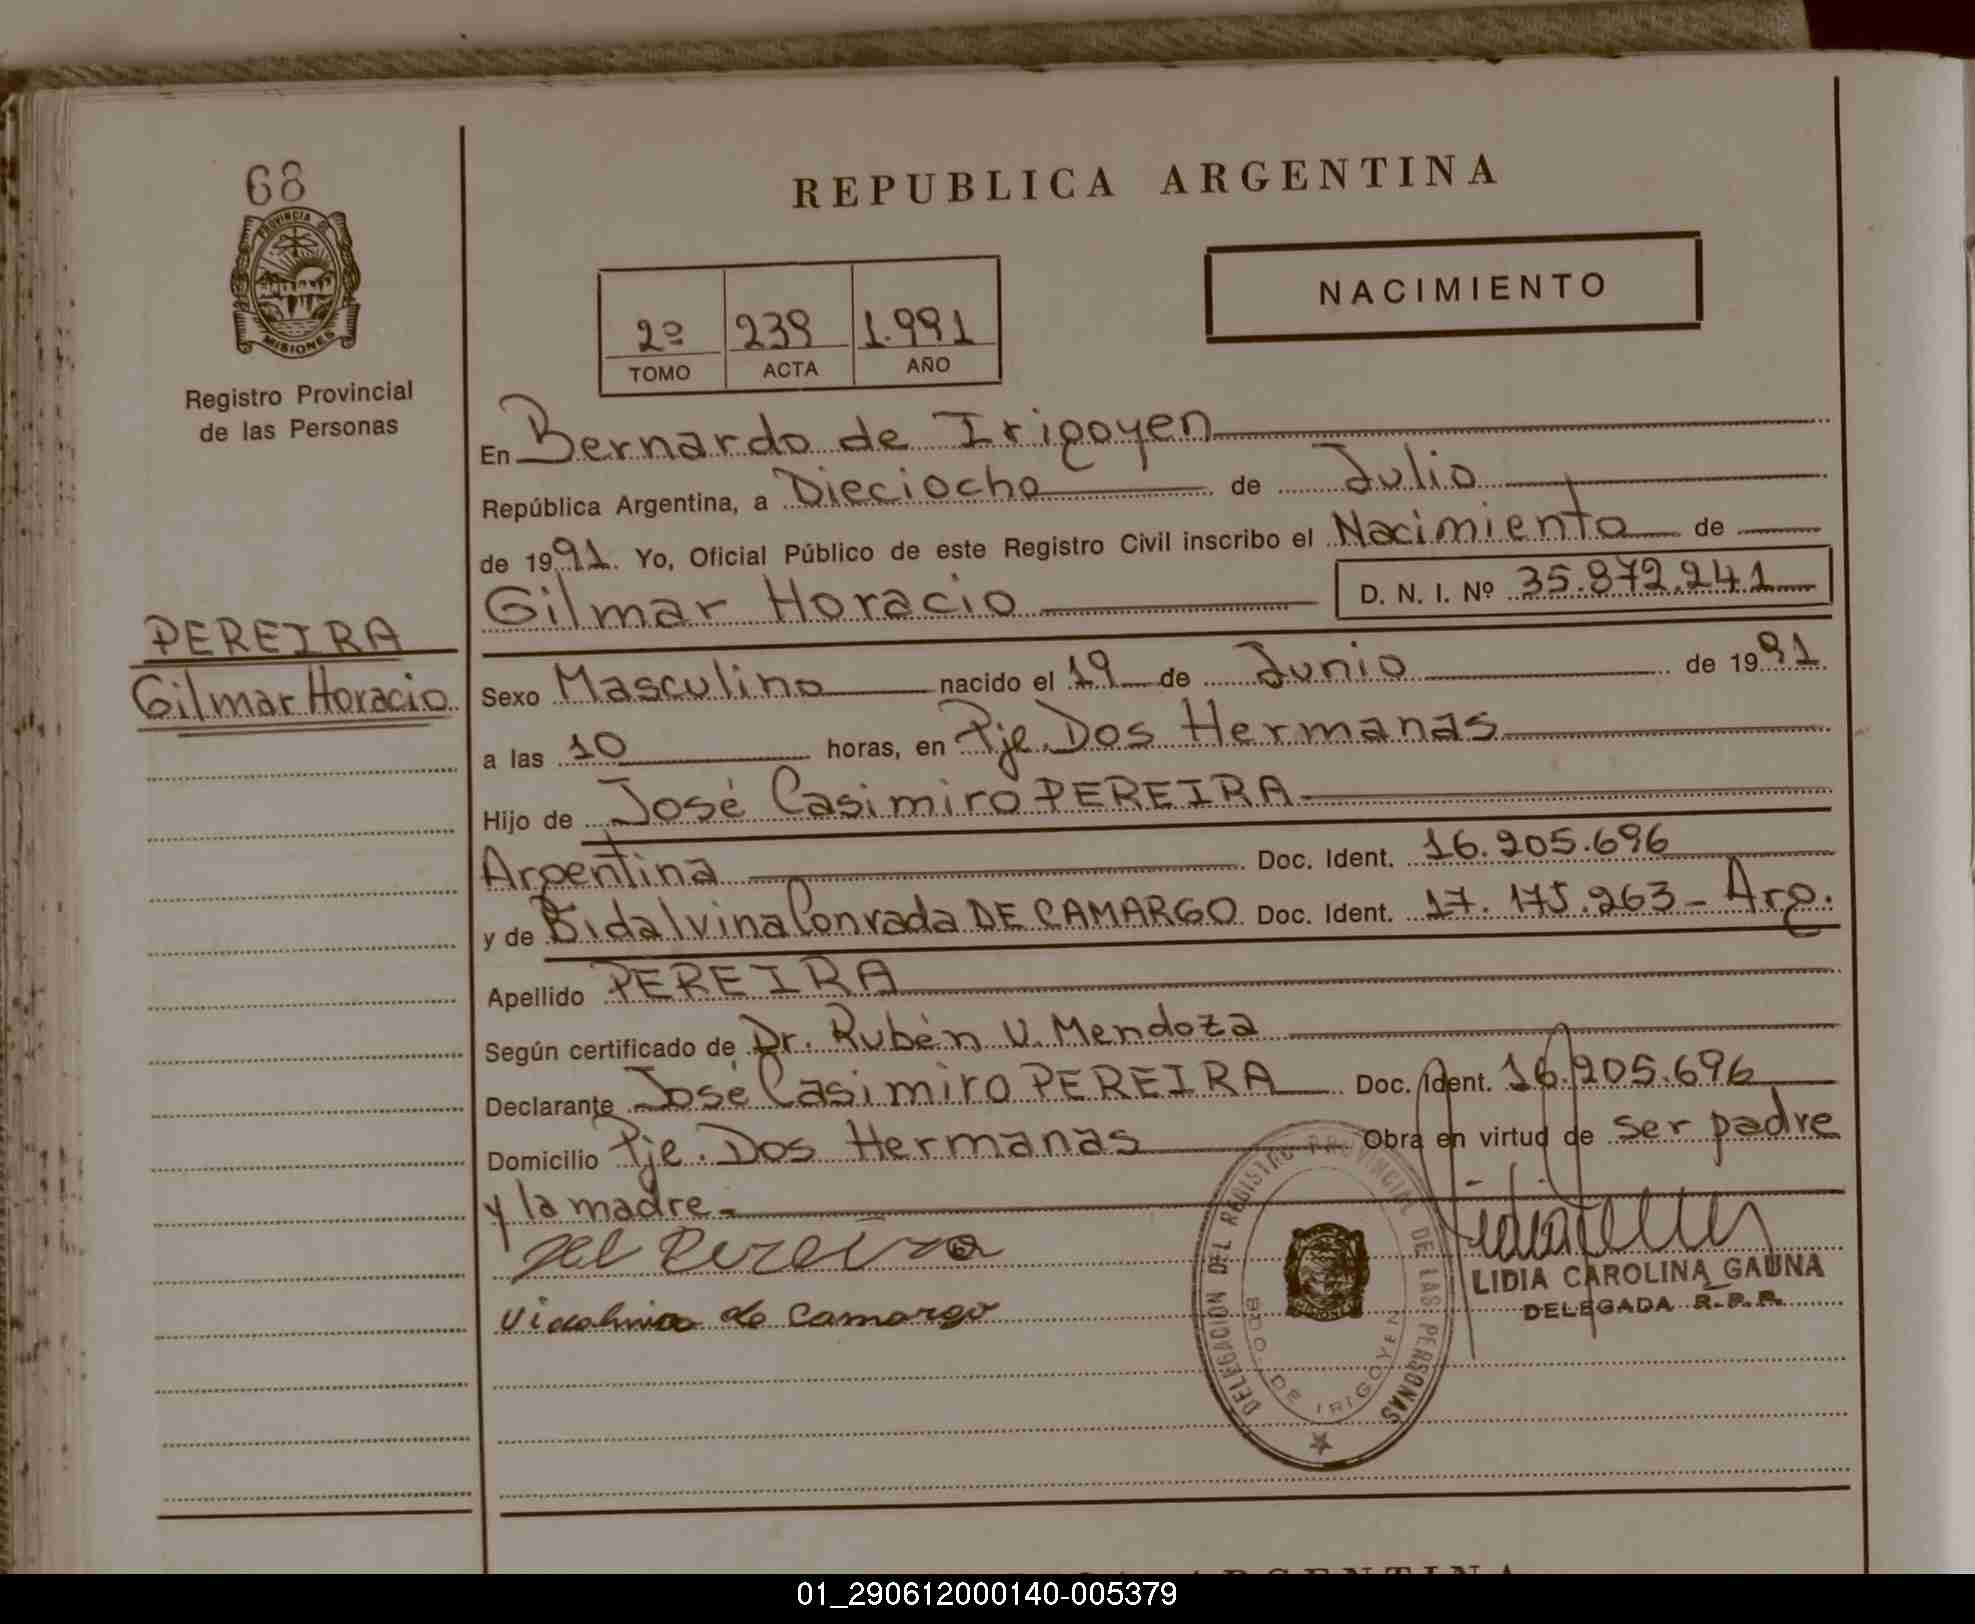 68
PROVINCIA DE
MISIONES
Registro Provincial
de las Personas
PEREIRA
Gilmar Horacio
REPUBLICA ARGENTINA
NACIMIENTO
2º 239 1.991
TOMO ACTA AÑO
En Bernardo de Irigoyen
República Argentina, a Dieciocho de Julio
de 1991. Yo, Oficial Público de este Registro Civil inscribo el Nacimiento de
Gilmar Horacio D. N. I. Nº 35.872.241
Sexo Masculino nacido el 19 de Junio de 1991
a las 10 horas, en Pje. Dos Hermanas
Hijo de José Casimiro PEREIRA
Argentina Doc. Ident. 16.205.696
y de Bidalvina Conrada DE CAMARGO Doc. Ident. 17.175.263 - Arg.
Apellido PEREIRA
Según certificado de Dr. Rubén V. Mendoza
Declarante José Casimiro PEREIRA Doc. Ident. 16.205.696
Domicilio Pje. Dos Hermanas Obra en virtud de ser padre
y la madre.-
Pereira
de Camargo
LIDIA CAROLINA GAUNA
DELEGADA R.P.P.
DELEGACION DEL REGISTRO PROVINCIAL DE LAS PERSONAS
BDO. DE IRIGOYEN
ARGENTINA
01_290612000140-005379